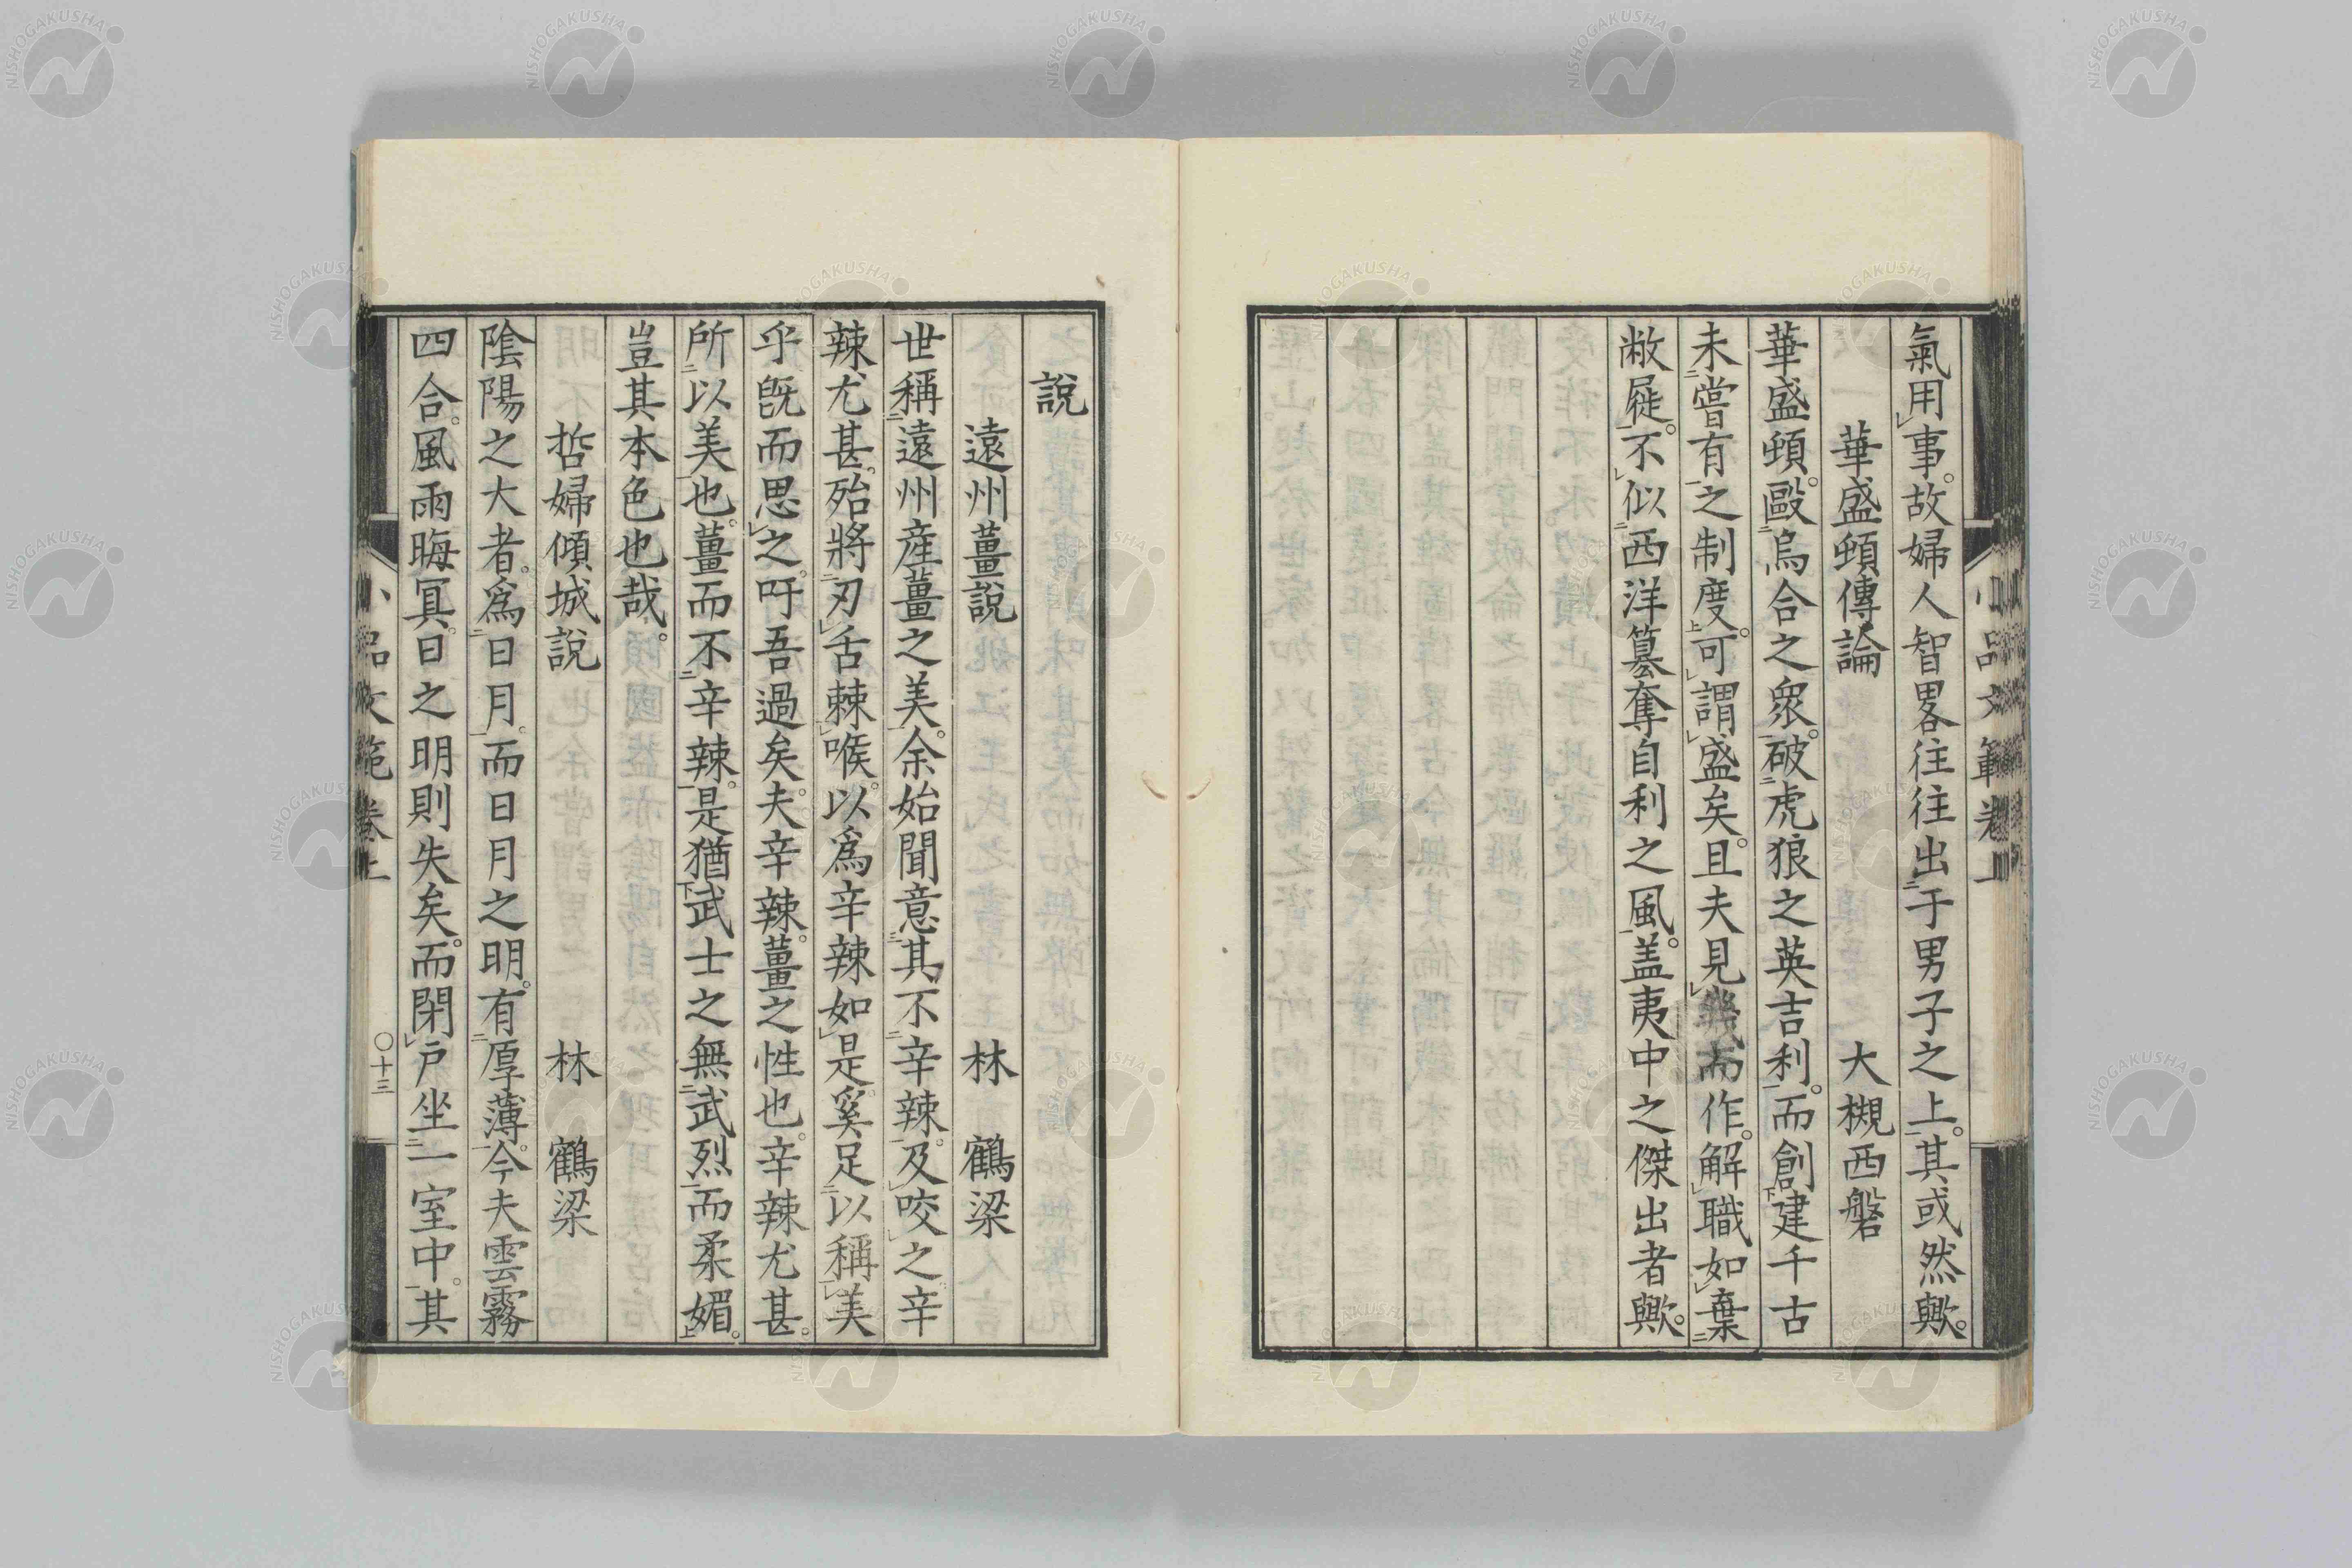 氣用事。故婦人智畧往往出于男子之上。其或然歟。
華盛頓傳論 大槻西磐
華盛頓。毆烏合之衆。破虎狼之英吉利。而創建千古
未嘗有之制度。可謂盛矣。且夫見幾而作。解職如棄
敝屣。不似西洋簒奪自利之風。盖夷中之傑出者歟。
小品文範卷上
說
遠州薑說 林 鶴梁
世稱遠州産薑之美。余始聞意其不辛辣。及咬之辛
辣尤甚。殆將刃舌棘喉。以爲辛辣如是奚足以稱美
乎。旣而思之。吁吾過矣。夫辛辣。薑之性也。辛辣尤甚。
所以美也。薑而不辛辣。是猶武士之無武烈而柔媚。
豈其本色也哉。
哲婦傾城說 林 鶴梁
陰陽之大者。爲日月。而日月之明。有厚薄。今夫雲霧
四合。風雨晦冥。日之明則失矣。而閉戸坐一室中。其
小品文範卷上
〇十三
NISHOGAKUSHA